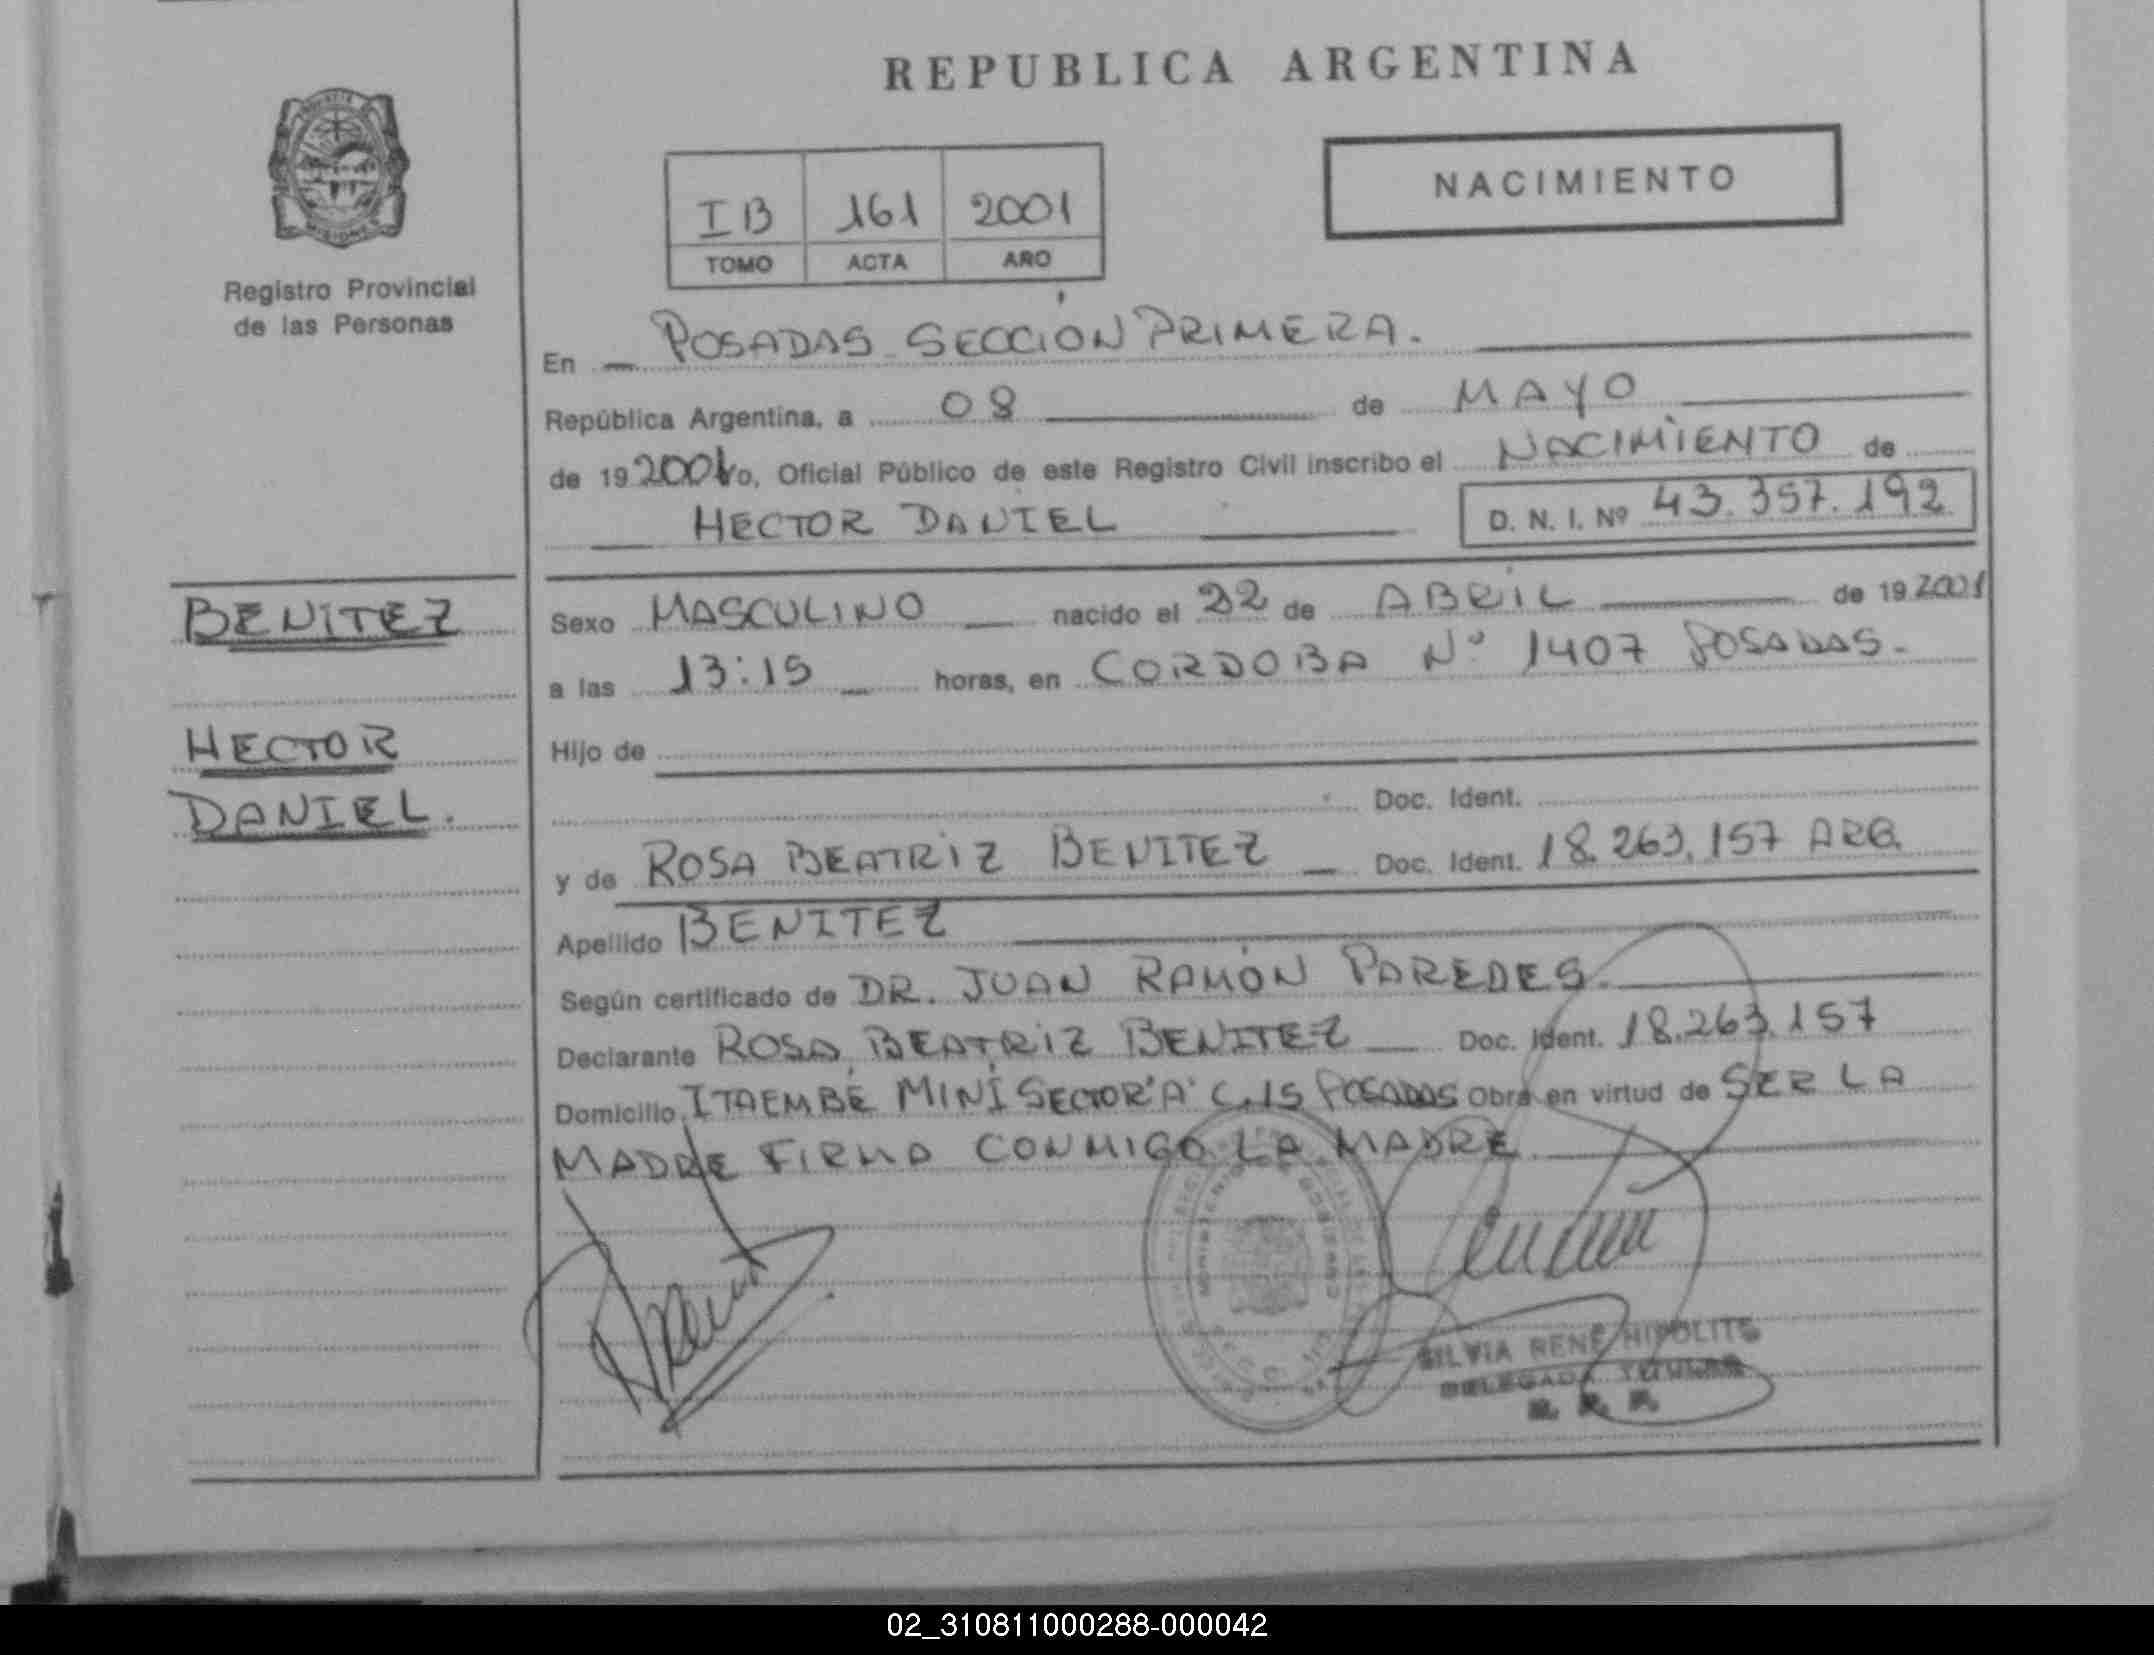 REPUBLICA ARGENTINA
NACIMIENTO
IB 161 2001
TOMO ACTA AÑO
Registro Provincial
de las Personas
En POSADAS SECCIÓN PRIMERA.
República Argentina, a 08 de MAYO
de 19 2001 Yo, Oficial Público de este Registro Civil inscribo el NACIMIENTO de
HECTOR DANIEL D. N. I. Nº 43.357.192
BENITEZ
HECTOR
DANIEL.
Sexo MASCULINO nacido el 22 de ABRIL de 19 2001
a las 13:15 horas, en CORDOBA Nº 1407 POSADAS.
Hijo de
Doc. Ident.
y de ROSA BEATRIZ BENITEZ Doc. Ident. 18.263.157 ARG.
Apellido BENITEZ
Según certificado de DR. JUAN RAMÓN PAREDES.
Declarante ROSA BEATRIZ BENITEZ Doc. Ident. 18.263.157
Domicilio ITAEMBÉ MINÍ SECTOR "A" C.15 POSADAS Obra en virtud de SER LA
MADRE FIRMA CONMIGO LA MADRE
SILVIA RENÉ HIPOLITO
DELEGADA TITULAR
02_310811000288-000042